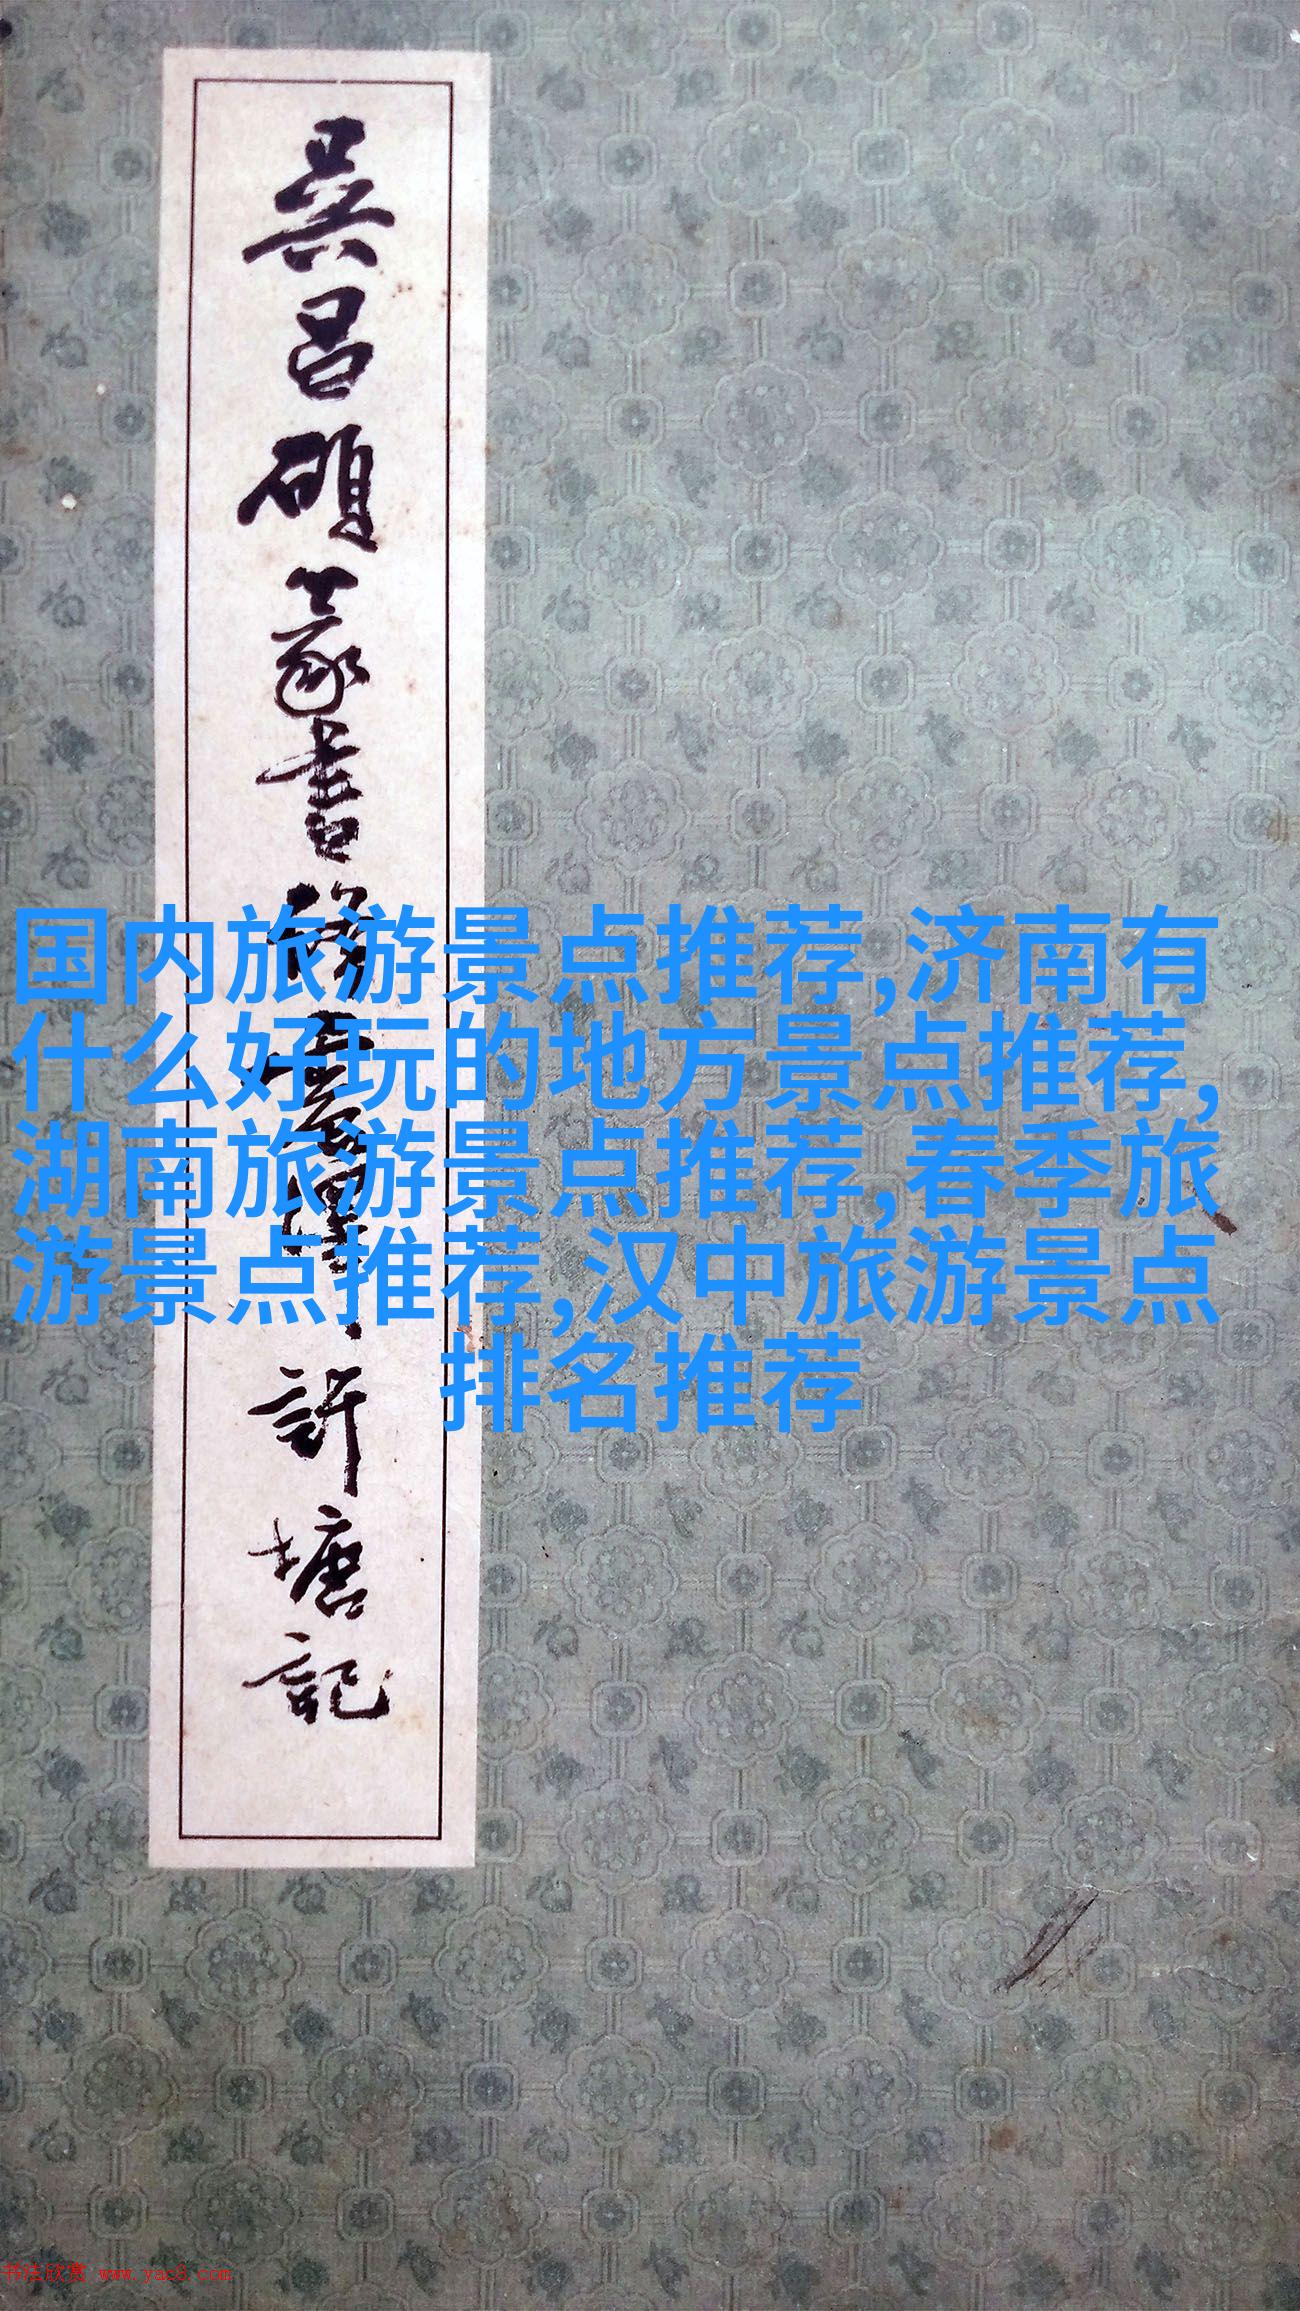 吳昌碩篆書修震澤許塘記
国内旅游景点推荐,济南有
什么好玩的地方景点推荐,
湖南旅游景点推荐,春季旅
游景点推荐,汉中旅游景点
排名推荐
书法欣赏 www.yac8.com